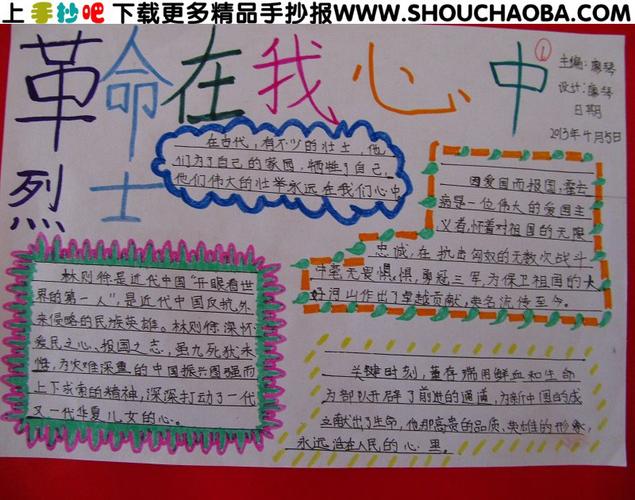 上手抄吧 下载更多精品手抄报WWW.SHOUCHAOBA.COM
革命在我心中
烈士
1
主编:廖琴
设计:廖琴
日期
2013年4月5日
在古代,有不少的壮士,他
们为了自己的家园,牺牲了自己。
他们伟大的壮举永远在我们心中
因爱国而报国,霍去
病是一位伟大的爱国主
义者,怀着对祖国的无限
忠诚,在抗击匈奴的无数次战斗
中毫无畏惧,勇冠三军,为保卫祖国的大
好河山作出了卓越贡献,英名流传至今。
林则徐是近代中国“开眼看世
界的第一人”,是近代中国反抗外
来侵略的民族英雄。林则徐深怀
爱民之心、报国之志,虽九死犹未
悔,为灾难深重的中国振兴图强而
上下求索的精神,深深打动了一代
又一代华夏儿女的心。
关键时刻,董存瑞用鲜血和生命
为部队开辟了前进的通道,为新中国的成
立献出了生命,他那高贵的品质、英雄的形象,
永远活在人民的心里。